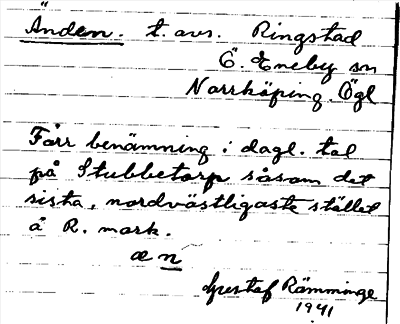 Änden. t. avs. Ringstad
Ö. Eneby sn
Norrköping. Ögl
Förr benämning i dagl. tal
på Stubbetorp såsom det
sista, nordvästligaste stället
å R. mark.
æ n
Gustaf Rämminge
1941